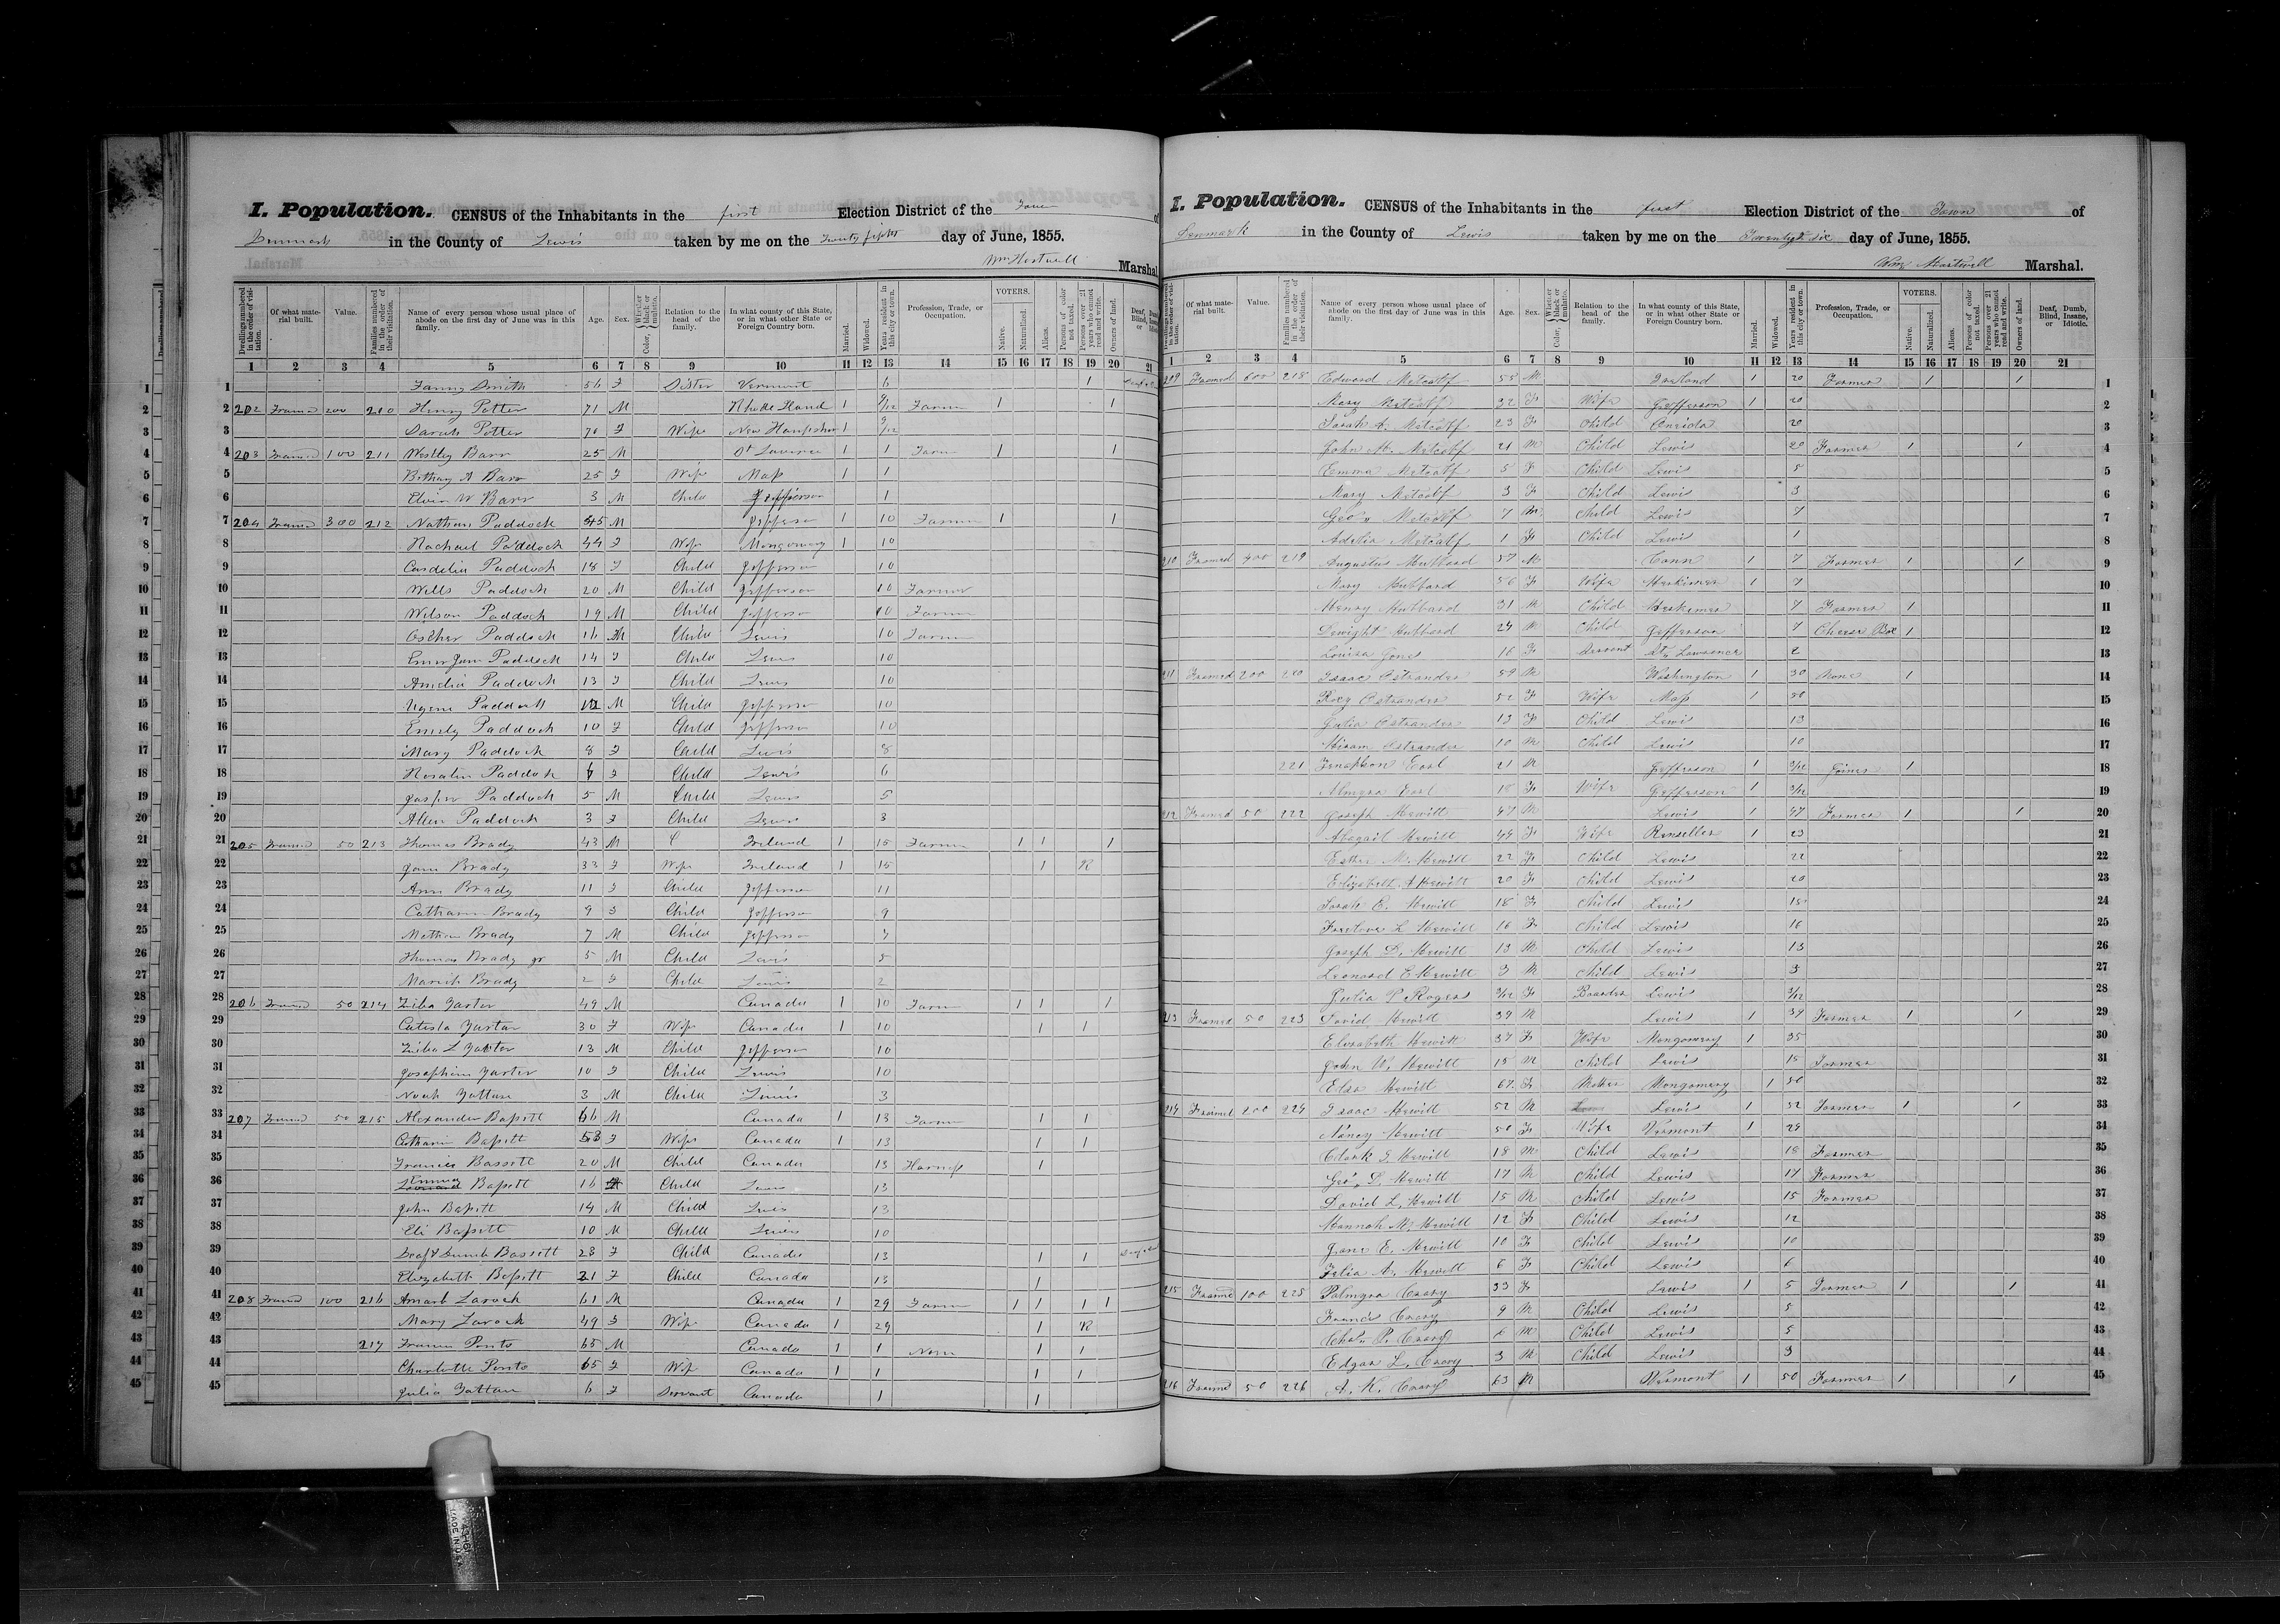 I. Population. CENSUS of the Inhabitants in the first Election District of the Town of
Denmark in the County of Lewis taken by me on the Twenty fifth day of June, 1855.
Wm Hartwell Marshal.
Dwellings numbered in the order of visitation. Of what material built. Value. Families numbered in the order of their visitation. Name of every person whose usual place of abode on the first day of June was in this family. Age. Sex. Color, Whether black or mulatto. Relation to the head of the family. In what county of this State, or in what other State or Foreign Country born. Married. Widowed. Years resident in this city or town. Profession, Trade, or Occupation. VOTERS. Native. Naturalized. Aliens. Persons of color not taxed. Persons over 21 years who cannot read and write. Owners of land. Deaf, Dumb, Blind, or
1 2 3 4 5 6 7 8 9 10 11 12 13 14 15 16 17 18 19 20 21
1 Fanny Smith 56 F Sister Vermont 6 1
2 202 Framed 200 210 Henry Potter 71 M Rhode Iland 1 Farmer 1 1
3 Sarah Potter 70 F Wife New Hampshire 1
4 203 Framed 100 211 Westley Barr 25 M 1 1 Farmer 1 1
5 Bethany A Barr 25 F Wife Mass 1 1
6 Elvin W Barr 3 M Child Jefferson 1
7 204 Framed 300 212 Nathan Paddock 45 M Jefferson 1 10 Farmer 1 1
8 Rachael Paddock 44 F Wife Mongomery 1 10
9 Cordelia Paddock 18 F Child Jefferson 10
10 Wells Paddock 20 M Child Jefferson 10 Farmer
11 Wilson Paddock 19 M Child Jefferson 10 Farmer
12 Paddock 16 M Child Lewis 10 Farmer
13 Paddock 14 F Child Lewis 10
14 Amelia Paddock 13 F Child Lewis 10
15 Paddock 12 M Child Jefferson 10
16 Emily Paddock 10 F Child Jefferson 10
17 Mary Paddock 8 F Child Lewis 8
18 Rosalia Paddock 6 F Child Lewis 6
19 Jasper Paddock 5 M Child Lewis 5
20 Allen Paddock 3 F Child Lewis 3
21 205 Framed 50 213 Thomas Brady 43 M Ireland 1 15 Farmer 1 1 1
22 Jane Brady 33 F Wife Ireland 1 15 1 R
23 Ann Brady 11 F Child Jefferson 11
24 Catharin Brady 9 F Child Jefferson 9
25 Brady 7 M Child Jefferson 7
26 Thomas Brady jr 5 M Child Lewis 5
27 Mariah Brady 2 F Child Lewis 2
28 206 Framed 50 214 Ziba 49 M Canada 1 10 Farmer 1 1 1
29 30 F Wife Canada 1 10 1 1
30 Ziba L 13 M Child Jefferson 10
31 Josephine 10 F Child Lewis 10
32 Noah 3 M Child Lewis 3
33 207 Framed 50 215 Alexander Bassett 66 M Canada 1 13 Farmer 1 1
34 Catharin Bassett 58 F Wife Canada 1 13 1 1
35 Francis Bassett 20 M Child Canada 13 Harness 1
36 Emma Bassett 16 Child Lewis 13
37 John Bassett 14 M Child Lewis 13
38 Eli Bassett 10 M Child Lewis 10
39 Deaf & Dumb Bassett 23 F Child Canada 13 1 1
40 Elizabeth Bassett 21 F Child Canada 13 1
41 208 Framed 100 216 Larock 61 M Canada 1 29 Farmer 1 1 1 1
42 Mary Larock 49 F Wife Canada 1 29 1 R
43 217 Francis Ponto 65 M Canada 1 1 None 1 1
44 Charlotte Ponto 65 F Wife Canada 1 1 1 1
45 Julia 6 F Servant Canada 1 1
I. Population. CENSUS of the Inhabitants in the first Election District of the Town of
Denmark in the County of Lewis taken by me on the Twenty six day of June, 1855.
Wm Hartwell Marshal.
Dwellings numbered in the order of visitation. Of what material built. Value. Families numbered in the order of their visitation. Name of every person whose usual place of abode on the first day of June was in this family. Age. Sex. Color, Whether black or mulatto. Relation to the head of the family. In what county of this State, or in what other State or Foreign Country born. Married. Widowed. Years resident in this city or town. Profession, Trade, or Occupation. VOTERS. Native. Naturalized. Aliens. Persons of color not taxed. Persons over 21 years who cannot read and write. Owners of land. Deaf, Dumb, Blind, Insane, or Idiotic.
1 2 3 4 5 6 7 8 9 10 11 12 13 14 15 16 17 18 19 20 21
209 Framed 600 218 Edward Metcalf 55 M 1 20 Farmer 1 1 1
Mary Metcalf 32 F Wife Jefferson 1 20 2
Sarah A. Metcalf 23 F Child Oneida 20 3
John H. Metcalf 21 M Child Lewis 20 Farmer 1 1 4
Emma Metcalf 5 F Child Lewis 5 5
Mary Metcalf 3 F Child Lewis 3 6
Geo. Metcalf 7 M Child Lewis 7 7
Adelia Metcalf 1 F Child Lewis 1 8
210 Framed 400 219 Augustus Hubbard 57 M Conn 1 7 Farmer 1 1 9
Mary Hubbard 56 F Wife Herkimer 1 7 10
Henry Hubbard 31 M Child Herkimer 7 Farmer 1 11
Dewight Hubbard 24 M Child Jefferson 7 Cheese Box 1 12
Louisa Jones 16 F Servant St. Lawrence 2 13
211 Framed 200 220 Isaac Ostrander 59 M Washington 1 30 None 1 14
Roxy Ostrander 52 F Wife Mass 1 30 15
Julia Ostrander 13 F Child Lewis 13 16
Hiram Ostrander 10 M Child Lewis 10 17
221 Zenaphon Earl 21 M Jefferson 1 3/12 Joiner 1 18
Almyra Earl 18 F Wife Jefferson 1 3/12 19
212 Framed 50 222 Joseph Hewitt 47 M Lewis 1 47 Farmer 1 1 20
Abagail Hewitt 49 F Wife Renseller 1 23 21
Esther M. Hewitt 22 F Child Lewis 22 22
Elizabeth A Hewitt 20 F Child Lewis 20 23
Sarah E. Hewitt 18 F Child Lewis 18 24
Freelove L Hewitt 16 F Child Lewis 16 25
Joseph D. Hewitt 13 M Child Lewis 13 26
Leonard E Hewitt 3 M Child Lewis 3 27
Julia P Rogers 3/12 F Boarder Lewis 3/12 28
213 Framed 50 223 David Hewitt 39 M Lewis 1 39 Farmer 1 1 29
Elizabeth Hewitt 37 F Wife Mongomery 1 35 30
John W. Hewitt 15 M Child Lewis 15 Farmer 31
Hewitt 67 F Mother Montgomery 1 50 32
214 Framed 200 224 Isaac Hewitt 52 M Lewis 1 52 Farmer 1 1 33
Nancy Hewitt 50 F Wife Vermont 1 29 34
Clark Hewitt 18 M Child Lewis 18 Farmer 35
Geo. S. Hewitt 17 M Child Lewis 17 Farmer 36
David L. Hewitt 15 M Child Lewis 15 Farmer 37
Hannah M. Hewitt 12 F Child Lewis 12 38
Jane E. Hewitt 10 F Child Lewis 10 39
Julia A. Hewitt 6 F Child Lewis 6 40
215 Framed 100 225 Palmyra Crary 33 F Lewis 1 5 Farmer 1 1 41
Francis Crary 9 M Child Lewis 5 42
Chas. P. Crary 6 M Child Lewis 5 43
Edgar L. Crary 3 M Child Lewis 3 44
216 Framed 50 226 A. K. Crary 63 M Vermont 1 50 Farmer 1 1 45